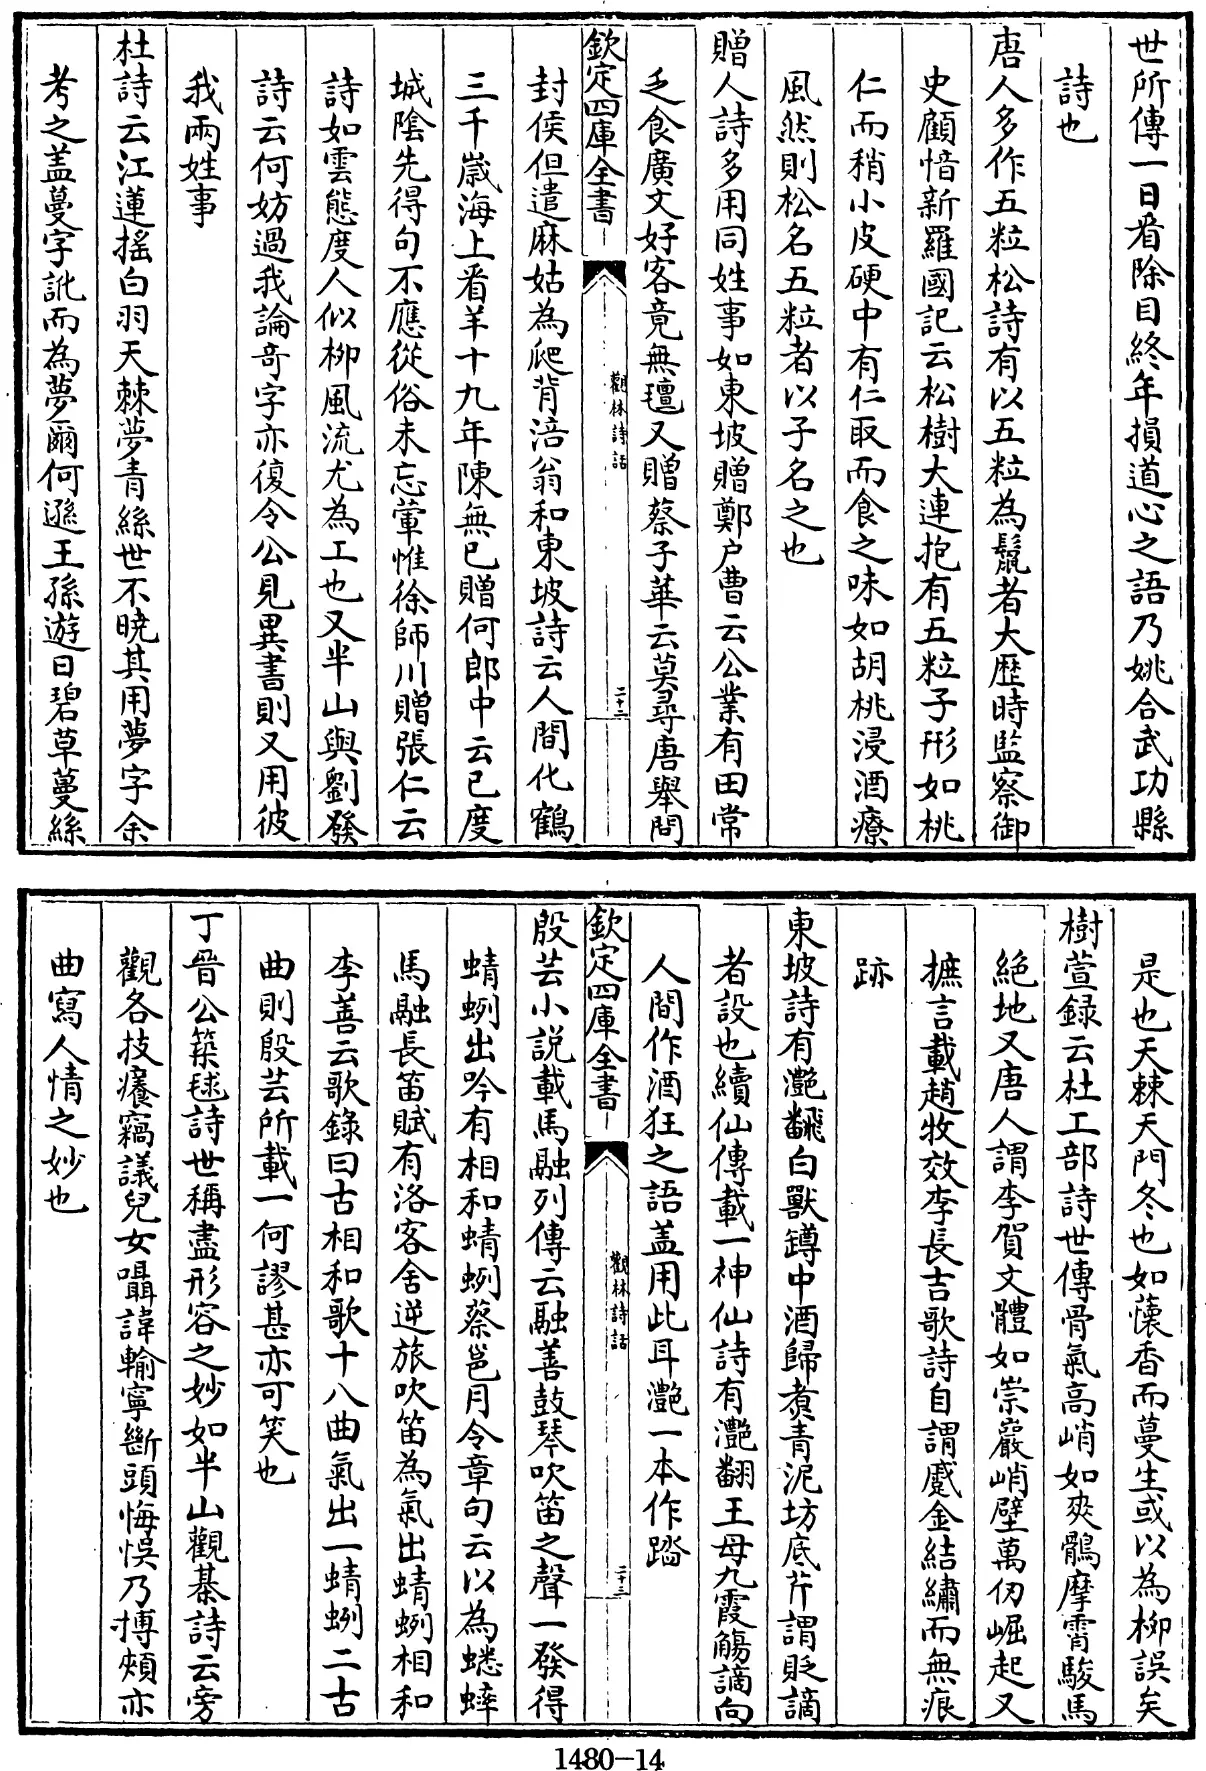 世所傳一日看除目終年損道心之語乃姚合武功縣
詩也
唐人多作五粒松詩有以五粒為鬛者大歴時監察御
史顧愔新羅國記云松樹大連抱有五粒子形如桃
仁而稍小皮硬中有仁取而食之味如胡桃浸酒療
風然則松名五粒者以子名之也
贈人詩多用同姓事如東坡贈鄭户曹云公業有田常
乏食廣文好客竟無氊又贈蔡子華云莫尋唐舉問
欽定四庫全書
觀林詩話
二十二
封侯但遣麻姑為爬背涪翁和東坡詩云人間化鶴
三千歲海上看羊十九年陳無已贈何郎中云已度
城陰先得句不應從俗未忘葷惟徐師川贈張仁云
詩如雲態度人似柳風流尤為工也又半山與劉發
詩云何妨過我論奇字亦復令公見異書則又用彼
我兩姓事
杜詩云江蓮揺白羽天棘夢青絲世不曉其用夢字余
考之盖蔓字訛而為夢爾何遜王孫遊曰碧草蔓絲
是也天棘天門冬也如蘹香而蔓生或以為柳誤矣
樹萱録云杜工部詩世傳骨氣高峭如爽鶻摩霄駿馬
絶地又唐人謂李賀文體如崇巖峭壁萬仞崛起又
摭言載趙牧效李長吉歌詩自謂蹙金結繡而無痕
跡
東坡詩有灔飜白獸罇中酒歸煮青泥坊底芹謂貶謫
者設也續仙傳載一神仙詩有灔翻王母九霞觴謫向
人間作酒狂之語盖用此耳灔一本作踏
欽定四庫全書
觀林詩話
二十三
殷芸小説載馬融列傳云融善鼓琴吹笛之聲一發得
蜻蛚出吟有相和蜻蛚蔡邕月令章句云以為蟋蟀
馬融長笛賦有洛客舍逆旅吹笛為氣出蜻蛚相和
李善云歌錄曰古相和歌十八曲氣出一蜻蛚二古
曲則殷芸所載一何謬甚亦可笑也
丁晉公築毬詩世稱盡形容之妙如半山觀棊詩云旁
觀各技癢竊議兒女囁諱輸寧斷頭悔悞乃搏頰亦
曲寫人情之妙也
1480-14